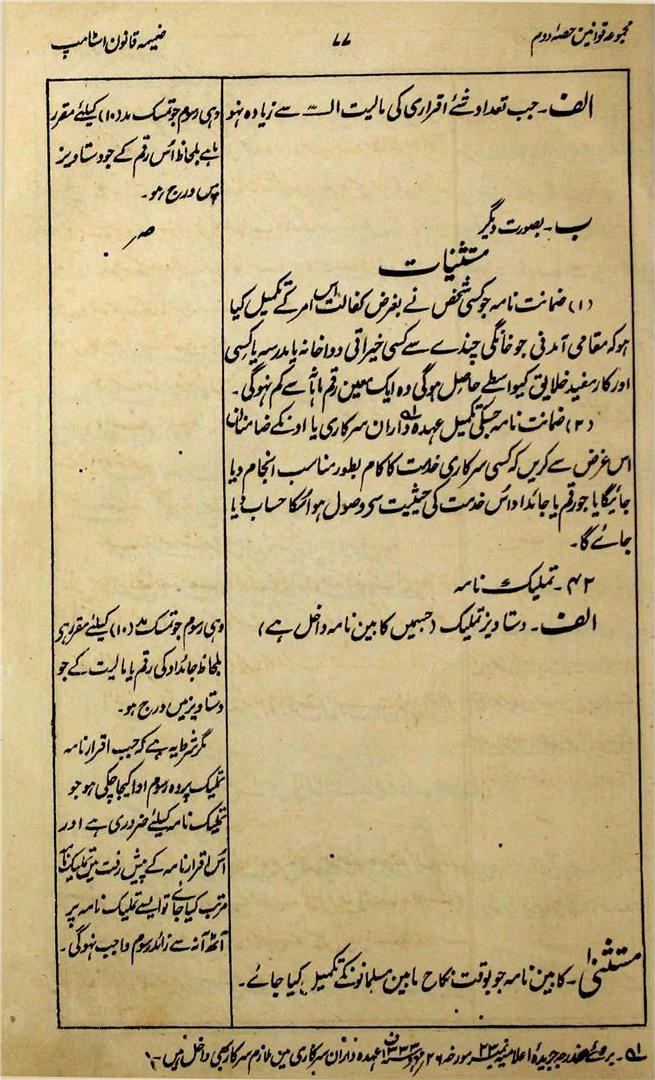 مجموعہ قوانین حصۂ دوم
۷۷
ضمیمہ قانون اسٹامپ
الف۔ جب تعداد شئے اقراری کی مالیت الـــہ سے زیادہ نہو
وہی رسوم جو تمسک مد (۱۰) کیلئے مقرر
ہا ہے بلحاظ اس رقم کے جو دستاویز
میں درج ہو۔
ب۔ بصورت دیگر
صہ
مستثنیات
(۱) ضمانت نامہ جو کسی شخص نے بغرض کفالت اس امر کے تکمیل کیا
ہو کہ مقامی آمدنی جو خانگی چندے سے کسی خیراتی دواخانہ یا مدرسہ یا کسی
اور کار مفید خلایق کیواسطے حاصل ہوگی وہ ایک معین رقم ماہانہ سے کم نہوگی۔
(۲) ضمانت نامہ جسکی تکمیل عہدہ داران سرکاری یا اونکے ضامنان
اس غرض سے کریں کہ کسی سرکاری خدمت کا کام بطور مناسب انجام دیا
جائیگا یا جو رقم یا جائداد اس خدمت کی حیثیت سے وصول ہو اسکا حساب دیا
جائے گا۔
۴۲۔ تملیک نامہ
الف۔ دستاویز تملیک (جسمیں کابین نامہ داخل ہے)
وہی رسوم جو تمسک مد (۱۰) کیلئے مقرر ہی
بلحاظ جائداد کی رقم یا مالیت کے جو
دستاویز میں درج ہو۔
مگر شرط یہ ہے کہ جب اقرار نامہ
تملیک پر وہ رسوم ادا کیجا چکی ہو جو
تملیک نامہ کیلئے ضروری ہے اور
اس اقرار نامہ کے پیش رفت میں تملیک نامہ
مرتب کیا جائے تو ایسے تملیک نامہ پر
آٹھ آنہ سے زائد رسوم واجب نہوگی۔
مستثنیٰ۔ کابین نامہ جو بوقت نکاح مابین مسلمانونکے تکمیل کیا جائے۔
۱؎۔ بروئے مندرجہ جریدۂ اعلامیہ نمبر ۲۳ مورخہ ۲۶ عہدہ داران سرکاری میں ملازم سرکار بھی داخل ہیں۔